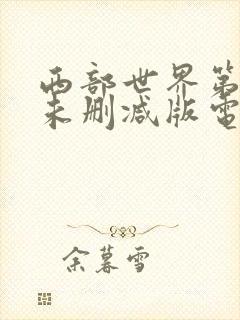 西部世界第
未删减版電
余暮雪